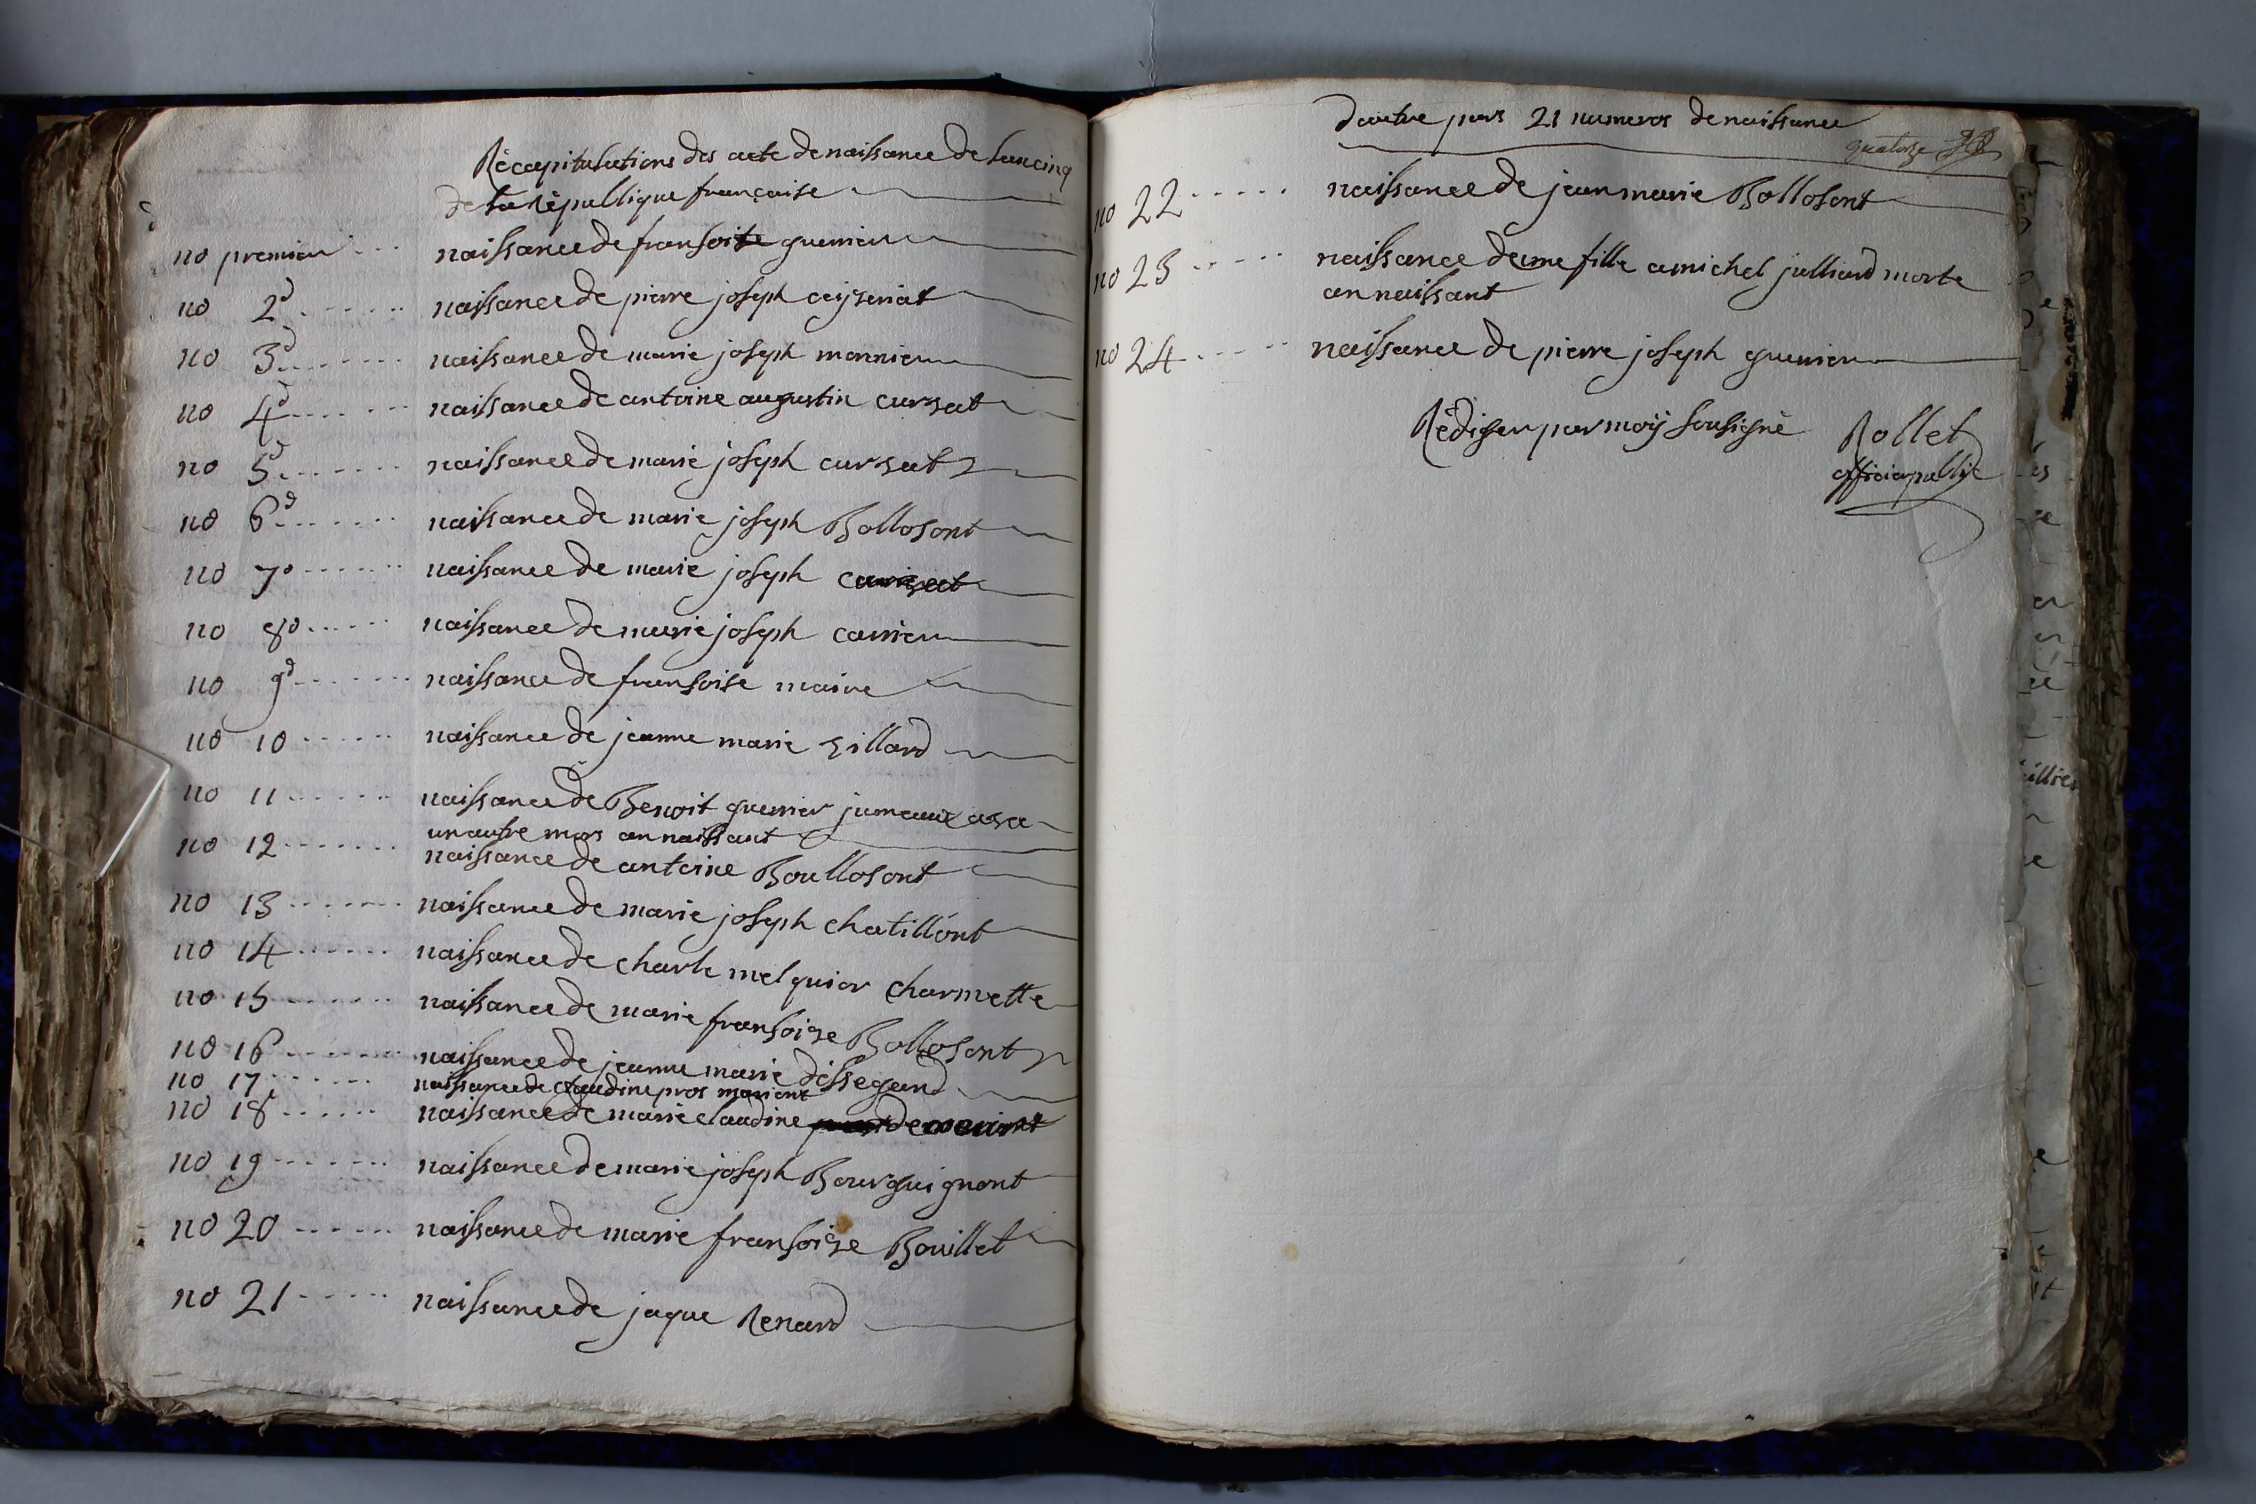 Récapitulations des acte de naissance de lan cinq
de la république francaise
no premier naissance de fransoise guerrier
no 2d naissance de pierre joseph ceijseriat
no 3d naissance de marie joseph monnier
no 4d naissance de antoine augustin curzat
no 5d naissance de marie joseph curzat
no 6d naissance de marie joseph Bollosont
no 7o naissance de marie joseph
no 8o naissance de marie joseph carrier
no 9d naissance de fransoise maire
no 10 naissance de jeanne marie villard
no 11 naissance de Benoit guerrier jumeaux a
un autre mors an naissant
no 12 naissance de antoine Boullosont
no 13 naissance de marie joseph chatillont
no 14 naissance de charle melquior charmette
no 15 naissance de marie fransoize Bollosont
no 16 naissance de jeanne marie dessegand
no 17 naissance de claudine pros morient
no 18 naissance de marie claudine
no 19 naissance de marie joseph Bourguignont
no 20 naissance de marie fransoize Bouillet
no 21 naissance de jaque Renard
dautre pars 21 numeros de naissance
quatorze
no 22 naissance de jean marie Bollosont
no 23 naissance de une fille a michel julliard morte
an naissant
no 24 naissance de pierre joseph guerrier
Rédiger par moÿ sousigné Rollet
officier public